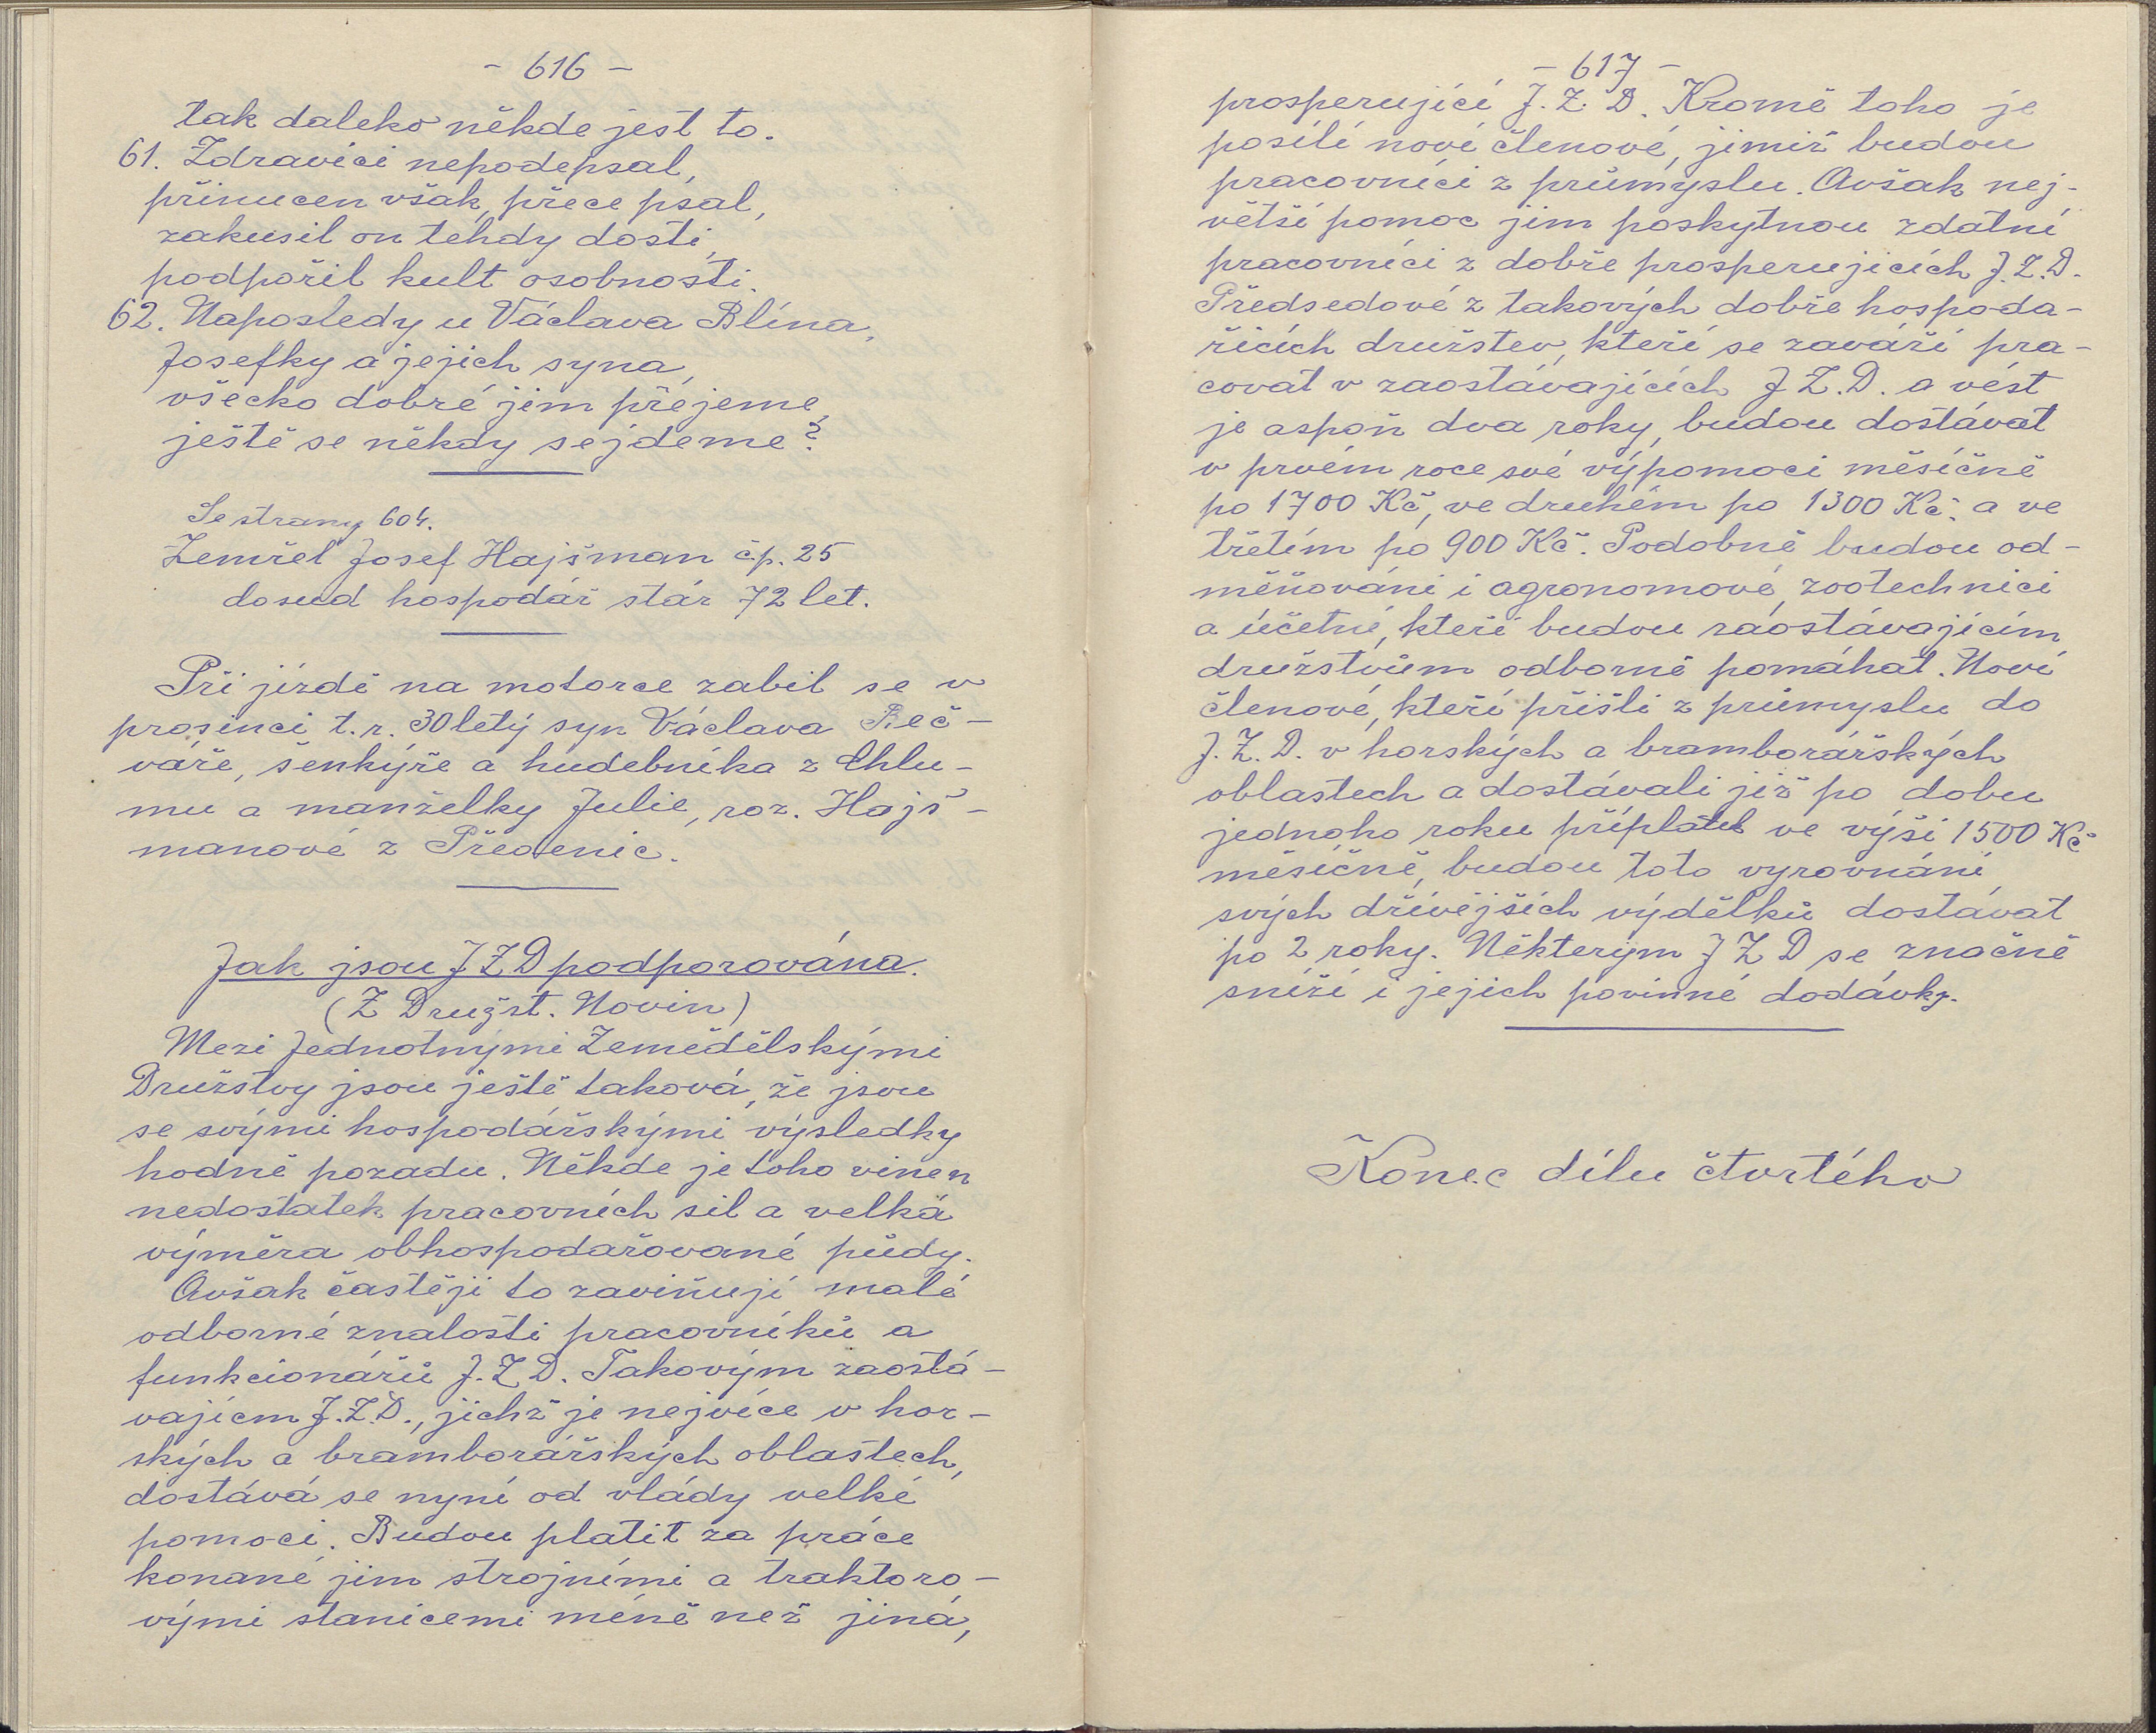 - 616 -
tak daleko někde jest to.
61. Zdravici nepodepsal,
přinucen však, přece psal,
zakusil on tehdy dosti,
podpořil kult osobnosti.
62. Naposledy u Václava Blína,
Josefky a jejich syna,
všecko dobré jim přejeme,
ještě se někdy sejdeme?
Se strany 604.
Zemřel Josef Hajšman čp. 25
dosud hospodář stár 72 let.
Při jízdě na motorce zabil se v
prosinci t. r. 30letý syn Václava Beč-
váře, šenkýře a hudebníka z Chlu-
mu a manželky Julie, roz. Hajš-
manové z Předenic.
Jak jsou JZD podporována.
(Z Družst. Novin)
Mezi Jednotnými Zemědělskými
Družstvy jsou ještě taková, že jsou
se svými hospodářskými výsledky
hodně pozadu. Někde je toho vinen
nedostatek pracovních sil a velká
výměra obhospodařované půdy.
Avšak častěji to zaviňují malé
odborné znalosti pracovníků a
funkcionářů J.ZD. Takovým zaostá-
vajícm J.Z.D., jichž je nejvíce v hor-
ských a bramborářských oblastech,
dostává se nyní od vlády velké
pomoci. Budou platit za práce
konané jim strojními a traktoro-
vými stanicemi méně než jiná,
- 617 -
prosperující J.Z.D. Kromě toho je
posílí noví členové, jimiž budou
pracovníci z průmyslu. Avšak nej-
větší pomoc jim poskytnou zdatní
pracovníci z dobře prosperujících J.Z.D.
Předsedové z takových dobře hospoda-
řících družstev, kteří se zaváží pra-
covat v zaostávajících J Z.D. a vést
je aspoň dva roky, budou dostávat
v prvém roce své výpomoci měsíčně
po 1700 Kč, ve druhém po 1300 Kč. a ve
třetím po 900 Kč. Podobně budou od-
měňováni i agronomové, zootechnici
a účetní, kteří budou zaostávajícím
družstvům odborně pomáhat. Noví
členové, kteří přišli z průmyslu do
J.Z.D. v horských a bramborářských
oblastech a dostávali již po dobu
jednoho roku příplatek ve výši 1500 Kč
měsíčně, budou toto vyrovnání
svých dřívějších výdělků dostávat
po 2 roky. Některým J Z D se značně
sníží i jejich povinné dodávky.
Konec dílu čtvrtého